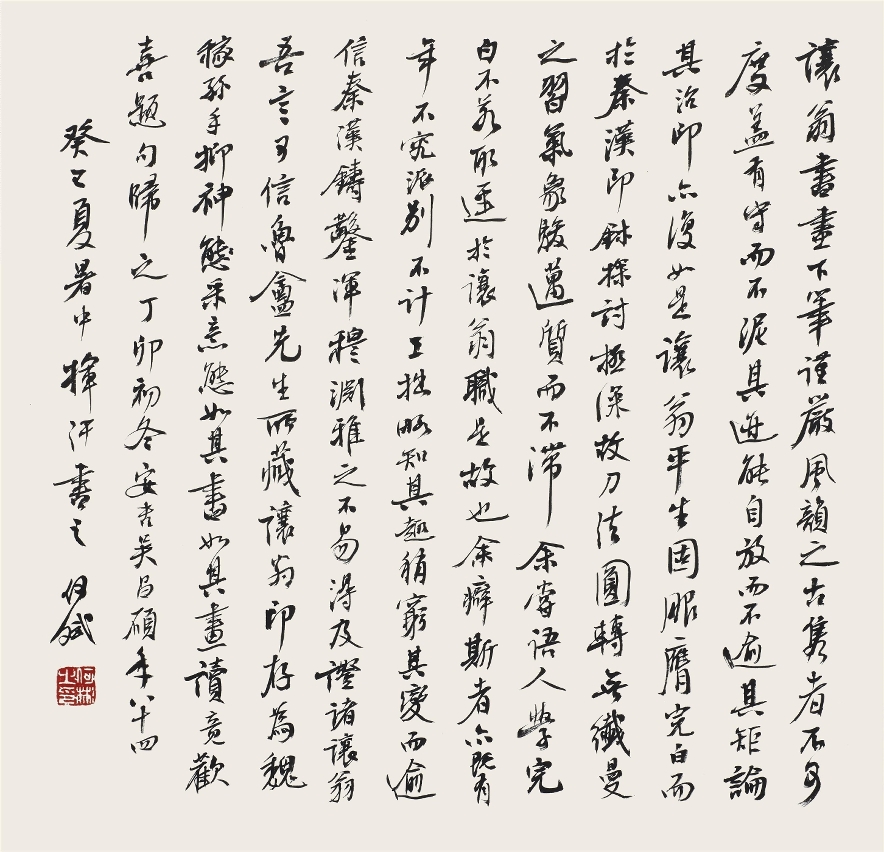 讓翁書畫下筆謹嚴風韻之古雋者不可
度蓋有守而不泥其跡能自放而不逾其矩論
其治印亦復如是讓翁平生固服膺完白而
於秦漢印鉥探討極深故刀法圓轉無纖曼
之習氣象駿邁質而不滯余嘗語人學完
白不若取逕於讓翁職是故也余癖斯者亦既有
年不究派別不計工拙略知其趣稍窮其變而逾
信秦漢鑄鑿渾穆淵雅之不易得及證諸讓翁
吾言可信魯盦先生所藏讓翁印存為魏
稼孫手抑神態采意態如其書如其畫讀竟歡
喜題句歸之丁卯初冬安吉吳昌碩年八十四
癸巳夏暑中揮汗書之 何斌